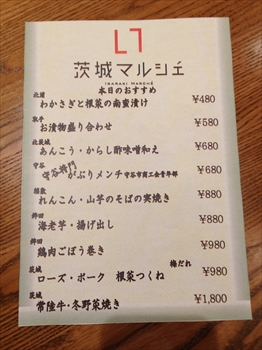 茨城マルシェ
IBARAKI MARCHÉ
本日のおすすめ
北浦
わかさぎと根菜の南蛮漬け ¥480
取手
お漬物盛り合わせ ¥580
北茨城
あんこう・からし酢味噌和え ¥680
守谷
守谷将門がぶりメンチ 守谷市商工会青年部 ¥680
稲敷
れんこん・山芋のそばの実焼き ¥880
鉾田
海老芋・揚げ出し ¥880
鉾田
鶏肉ごぼう巻き ¥980
茨城 梅だれ
ローズ・ポーク 根菜つくね ¥980
茨城
常陸牛・冬野菜焼き ¥1,800